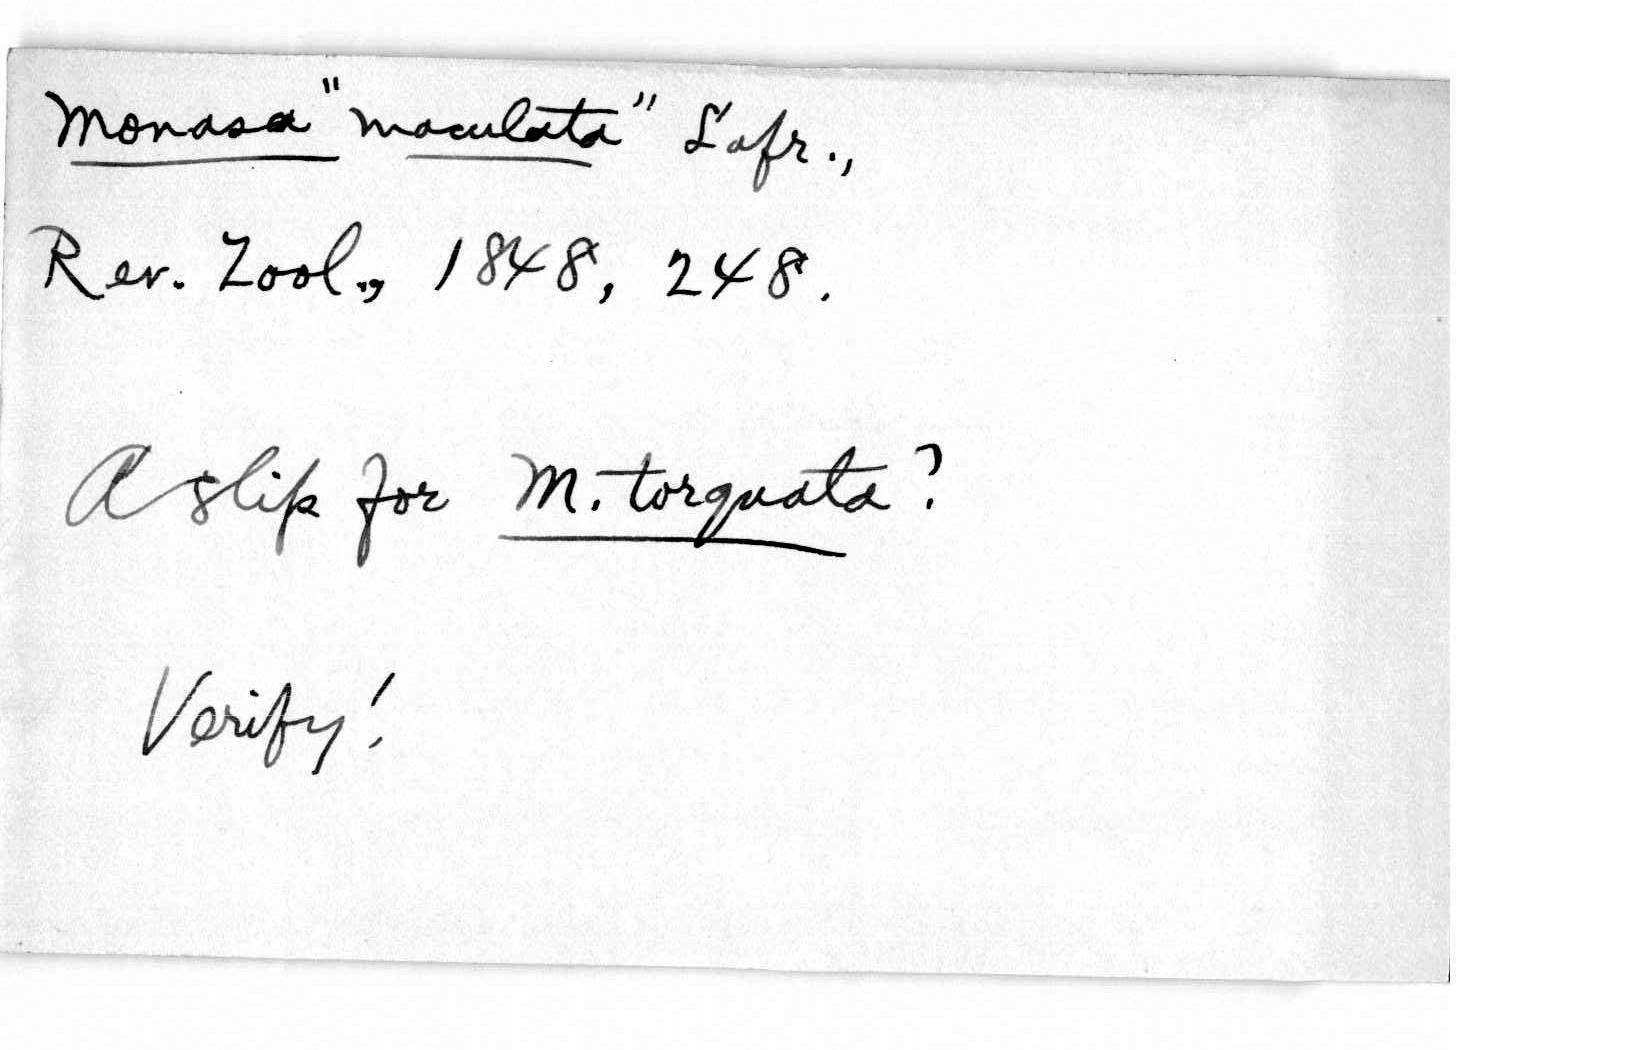 Monasa "maculata" Lafr.,
Rev. Zool., 1848, 248.
A slip for M. torquata?
Verify!